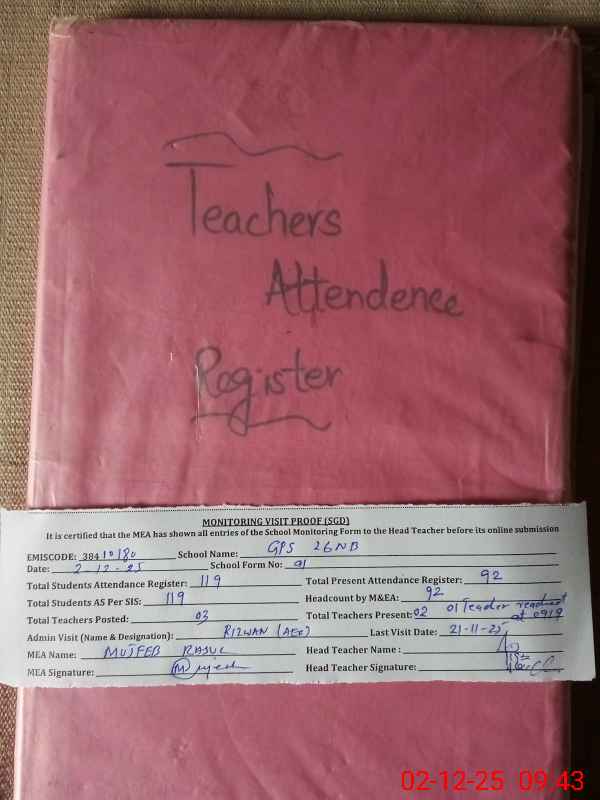 Teachers
Attendence
Register
MONITORING VISIT PROOF (SGD)
It is certified that the MEA has shown all entries of the School Monitoring Form to the Head Teacher before its online submission
EMISCODE: 38410180 School Name: GPS 26NB
Date: 2-12-25 School Form No: 01
Total Students Attendance Register: 119 Total Present Attendance Register: 92
Total Students AS Per SIS: 119 Headcount by M&EA: 92
Total Teachers Posted: 03 Total Teachers Present: 02 01 Teacher reached at 0919
Admin Visit (Name & Designation): RIZWAN (AEO) Last Visit Date: 21-11-25
MEA Name: MUJEEB RASUL Head Teacher Name:
MEA Signature: Mujeeb Head Teacher Signature:
02-12-25 09.43